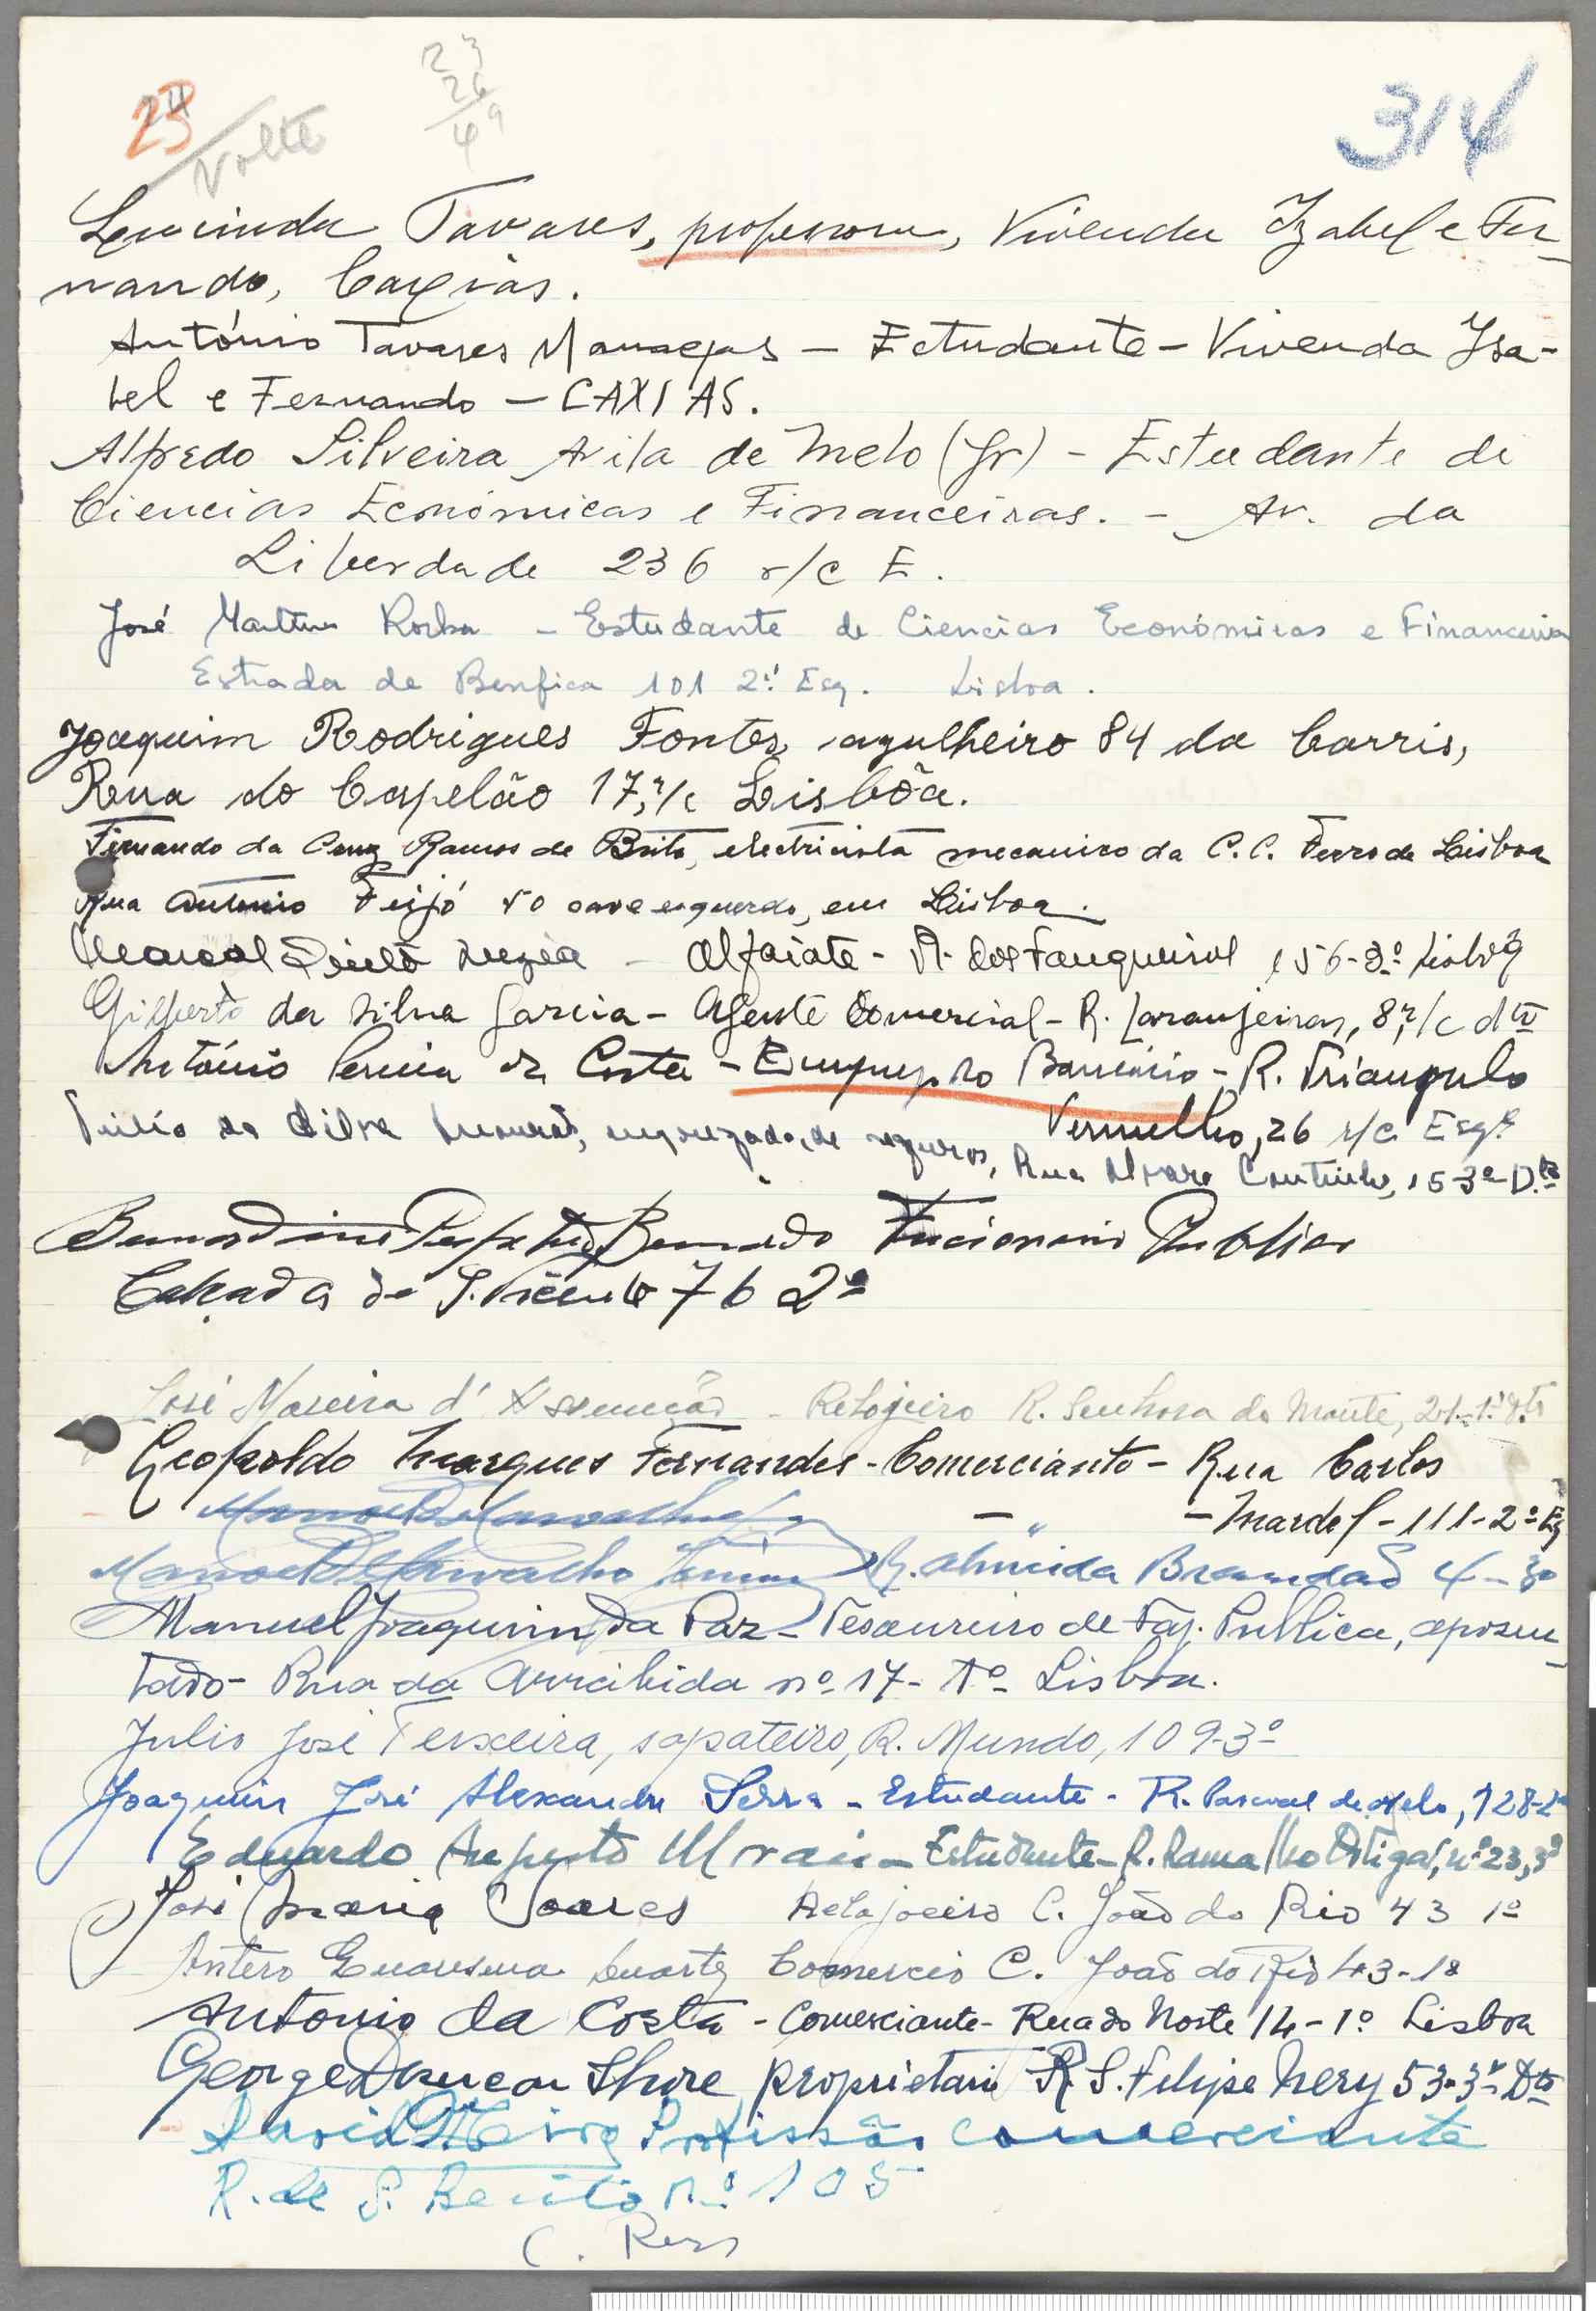 23
26
49
23
24
Volte
314
Lucinda Tavares, professora, Vivenda Izabel e Fer-
nando, Caxias.
António Tavares Manaças – Estudante – Vivenda Isa-
bel e Fernando – CAXIAS.
Alfredo Silveira Avila de Melo (Jr) – Estudante de
Ciencias Económicas e Financeiras. – Av. da
Liberdade 236 r/c E.
José Martins Rocha – Estudante de Ciencias Económicas e Financeiras
Estrada de Benfica 101 2º Esq. Lisboa.
Joaquim Rodrigues Fontes, agulheiro 84 da Carris,
Rua do Capelão 17, r/c Lisbôa.
Fernando da Cruz Ramos de Brito, electricista mecanico da C.C. Ferro de Lisboa
Rua Antonio Feijó 50 cave esquerdo, em Lisboa.
Alfaiate – R. dos Fanqueiros 156-3º Lisboa
Gilberto da Silva Garcia – Agente Comercial – R. Laranjeiras, 8, r/c dtº
António Pereira da Costa – Empregado Bancário – R. Triangulo
Vermelho, 26 r/c Esqº
Tulio da Silva empregado de seguros, Rua Alvaro Coutinho, 15 3º D.to
Bernardino Bernardo Funcionario Publico
Calçada de S. Vicente 76 2º
José Moreira d'Assunção – Relojeiro R. Senhora do Monte, 21-1º dto
Leopoldo Marques Fernandes – Comerciante – Rua Carlos
– Mardel – 111-2º Eq
Manoel de Carvalho – " –
Manoel de Carvalho Junior R. Almeida Brandão 4-3º
Manuel Joaquim da Paz – Tesoureiro de Faz. Publica, aposen-
tado – Rua da Arrabida nº 17-1º Lisboa.
Julio José Teixeira, sapateiro, R. Mundo, 109-3º
Joaquim José Alexandre Serra – Estudante – R. Pascoal de Melo, 128-2º
Eduardo Augusto Morais – Estudante – R. Ramalho Ortigão, nº 23, 3º
José Maria Soares Relojoeiro C. João do Rio 43 1º
Antero Quaresma Duarte Comercio C. João do Rio 43-1º
Antonio da Costa – Comerciante – Rua do Norte 14-1º Lisboa
George Duncan Shore proprietario R. S. Felipe Nery 53-3º Dto
David Profissão Comerciante
R. de S. Bento nº 105